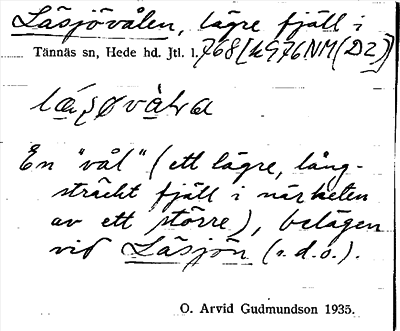 Läsjövålen, lägre fjäll i
Tännäs sn, Hede hd. Jtl. l. 768[k976NM(D2)]
En "vål" (ett lägre, lång-
sträckt fjäll i närheten
av ett större), belägen
vid Läsjön (s.d.o.).
O. Arvid Gudmundson 1935.